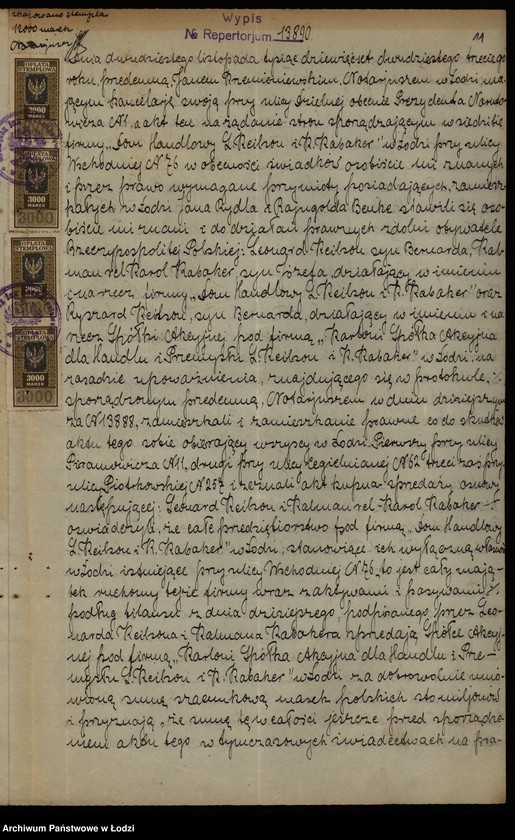 skasowano stempla
12000 marek
Notarjusz
Wypis
№ Repertorjum 13890.
11
OPŁATA STEMPLOWA
3000
MAREK
OPŁATA STEMPLOWA
3000
MAREK
OPŁATA STEMPLOWA
3000
MAREK
OPŁATA STEMPLOWA
3000
MAREK
Dnia dwudziestego listopada tysiąc dziewięćset dwudziestego trzeciego
roku, przedemną, Janem Krzemieniewskim, Notarjuszem w Łodzi, ma-
jącym kancelarję swoją przy ulicy Dzielnej obecnie Prezydenta Naruto-
wicza № 1, a akt ten na żądanie stron sporządzającym w siedzibie
firmy „Dom Handlowy L. Keilson i K. Rabaker" w Łodzi przy ulicy
Wschodniej № 76 w obecności świadków osobiście mi znanych
i przez prawo wymagane przymioty posiadających, zamiesz-
kałych w Łodzi Jana Rydla i Rajngolda Benke stawili się oso-
biście mi znani i do działań prawnych zdolni obywatele
Rzeczypospolitej Polskiej: Leonard Keilson syn Bernarda, Kal-
man vel Karol Rabaker, syn Józefa, działający w imieniu
i na rzecz firmy „Dom Handlowy L. Keilson i K. Rabaker" oraz
Ryszard Keilson, syn Bernarda, działający w imieniu i na
rzecz Spółki Akcyjnej pod firmą „Karloni Spółka Akcyjna
dla Handlu i Przemysłu L. Keilson i K. Rabaker" w Łodzi na
zasadzie upoważnienia, znajdującego się w protokule,
sporządzonym przedemną, Notarjuszem w dniu dzisiejszym
za № 13888, zamieszkali i zamieszkanie prawne co do skutków
aktu tego sobie obierający wszyscy w Łodzi. Pierwszy przy ulicy
Piramowicza № 11, drugi przy ulicy Cegielnianej № 62 trzeci zaś przy
ulicy Piotrkowskiej № 257 i zeznali akt kupna-sprzedaży osnowy
następującej: Leonard Keilson i Kalman vel Karol Rabaker
oświadczyli, że całe przedsiębiorstwo pod firmą „Dom Handlowy
L. Keilson i K. Rabaker" w Łodzi, stanowiące ich wyłączną własność
w Łodzi istniejące przy ulicy Wschodniej № 76, to jest cały mają-
tek ruchomy tejże firmy wraz z aktywami i pasywami
podług bilansu z dnia dzisiejszego, podpisanego przez Leo-
narda Keilsona i Kalmana Rabakera sprzedają Spółce Akcyj-
nej pod firmą „Karloni Spółka Akcyjna dla Handlu i Prze-
mysłu L. Keilson i K. Rabaker" w Łodzi za dobrowolnie umó-
wioną sumę szacunkową marek polskich sto miljonów
i przyznają, że sumę tę w całości jeszcze przed sporządze-
niem aktu tego w tymczasowych świadectwach na pra-
Archiwum Państwowe w Łodzi